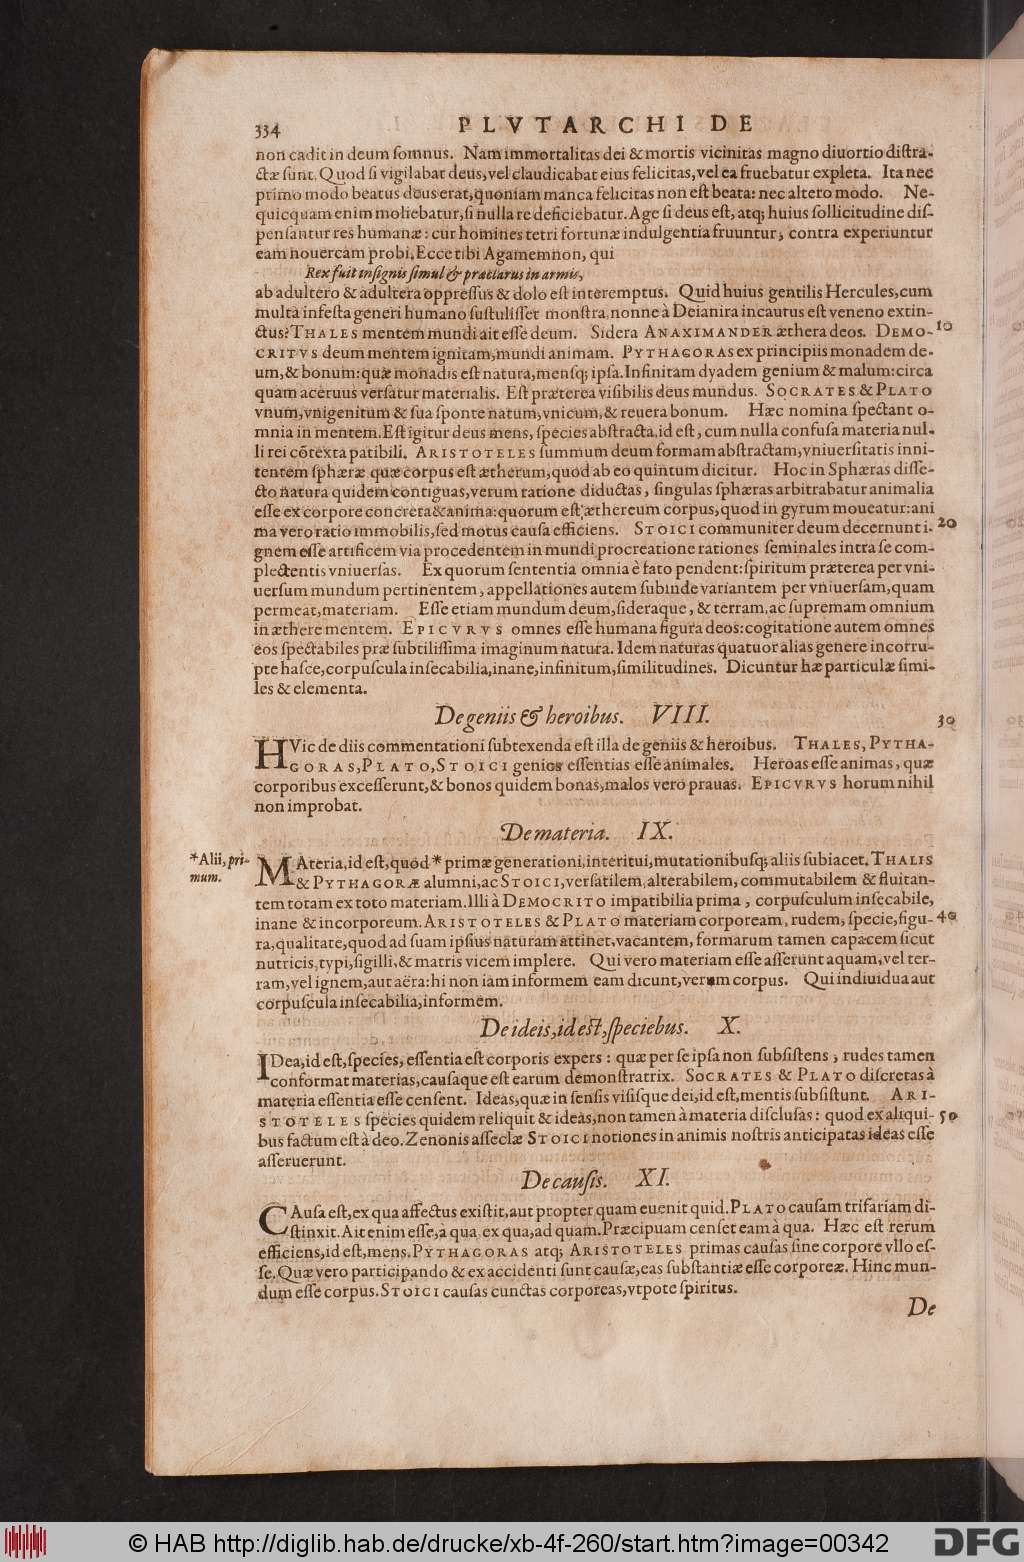 334 PLVTARCHI DE
non cadit in deum ſomnus. Nam immortalitas dei & mortis vicinitas magno diuortio diſtra-
ctæ ſunt. Quod ſi vigilabat deus, vel claudicabat eius felicitas, vel ea fruebatur expleta. Ita nec
primo modo beatus deus erat, quoniam manca felicitas non eſt beata: nec altero modo. Ne-
quicquam enim moliebatur, ſi nulla re deficiebatur. Age ſi deus eſt, atq; huius ſollicitudine diſ-
penſantur res humanæ: cur homines tetri fortunæ indulgentia fruuntur, contra experiuntur
eam nouercam probi, Ecce tibi Agamemnon, qui
Rex fuit inſignis ſimul & præclarus in armis,
ab adultero & adultera oppreſſus & dolo eſt interemptus. Quid huius gentilis Hercules, cum
multa infeſta generi humano ſuſtuliſſet monſtra, nonne à Deianira incautus eſt veneno extin-
ctus? THALES mentem mundi ait eſſe deum. Sidera ANAXIMANDER æthera deos. DEMO- 10
CRITVS deum mentem ignitam, mundi animam. PYTHAGORAS ex principiis monadem de-
um, & bonum: quæ monadis eſt natura, mensq; ipſa. Infinitam dyadem genium & malum: circa
quam aceruus verſatur materialis. Eſt præterea viſibilis deus mundus. SOCRATES & PLATO
vnum, vnigenitum & ſua ſponte natum, vnicum, & reuera bonum. Hæc nomina ſpectant o-
mnia in mentem. Eſt igitur deus mens, ſpecies abſtracta, id eſt, cum nulla confuſa materia nul-
li rei cõtexta patibili. ARISTOTELES ſummum deum formam abſtractam, vniuerſitatis inni-
tentem ſphæræ quæ corpus eſt ætherum, quod ab eo quintum dicitur. Hoc in Sphæras diſſe-
cto natura quidem contiguas, verum ratione diductas, ſingulas ſphæras arbitrabatur animalia
eſſe ex corpore concreta & anima: quorum eſt æthereum corpus, quod in gyrum moueatur: ani
ma vero ratio immobilis, ſed motus cauſa efficiens. STOICI communiter deum decernunt i- 20
gnem eſſe artificem via procedentem in mundi procreatione rationes ſeminales intra ſe com-
plectentis vniuerſas. Ex quorum ſententia omnia è fato pendent: ſpiritum præterea per vni-
uerſum mundum pertinentem, appellationes autem ſubinde variantem per vniuerſam, quam
permeat, materiam. Eſſe etiam mundum deum, ſideraque, & terram, ac ſupremam omnium
in æthere mentem. EPICVRVS omnes eſſe humana figura deos: cogitatione autem omnes
eos ſpectabiles præ ſubtiliſſima imaginum natura. Idem naturas quatuor alias genere incorru-
pte haſce, corpuſcula inſecabilia, inane, infinitum, ſimilitudines. Dicuntur hæ particulæ ſimi-
les & elementa.
De geniis & heroibus. VIII. 30
HVic de diis commentationi ſubtexenda eſt illa de geniis & heroibus. THALES, PYTHA-
GORAS, PLATO, STOICI genios eſſentias eſſe animales. Heroas eſſe animas, quæ
corporibus exceſſerunt, & bonos quidem bonas, malos vero prauas. EPICVRVS horum nihil
non improbat.
De materia. IX.
*Alii, pri-
mum.
MAteria, id eſt, quod * primæ generationi, interitui, mutationibuſq; aliis ſubiacet. THALIS
& PYTHAGORÆ alumni, ac STOICI, verſatilem, alterabilem, commutabilem & fluitan-
tem totam ex toto materiam. Illi à DEMOCRITO impatibilia prima, corpuſculum inſecabile,
inane & incorporeum. ARISTOTELES & PLATO materiam corpoream, rudem, ſpecie, figu- 40
ra, qualitate, quod ad ſuam ipſius naturam attinet, vacantem, formarum tamen capacem ſicut
nutricis, typi, ſigilli, & matris vicem implere. Qui vero materiam eſſe aſſerunt aquam, vel ter-
ram, vel ignem, aut aëra: hi non iam informem eam dicunt, verum corpus. Qui indiuidua aut
corpuſcula inſecabilia, informem.
De ideis, id est, ſpeciebus. X.
IDea, id eſt, ſpecies, eſſentia eſt corporis expers: quæ per ſe ipſa non ſubſiſtens, rudes tamen
conformat materias, cauſaque eſt earum demonſtratrix. SOCRATES & PLATO diſcretas à
materia eſſentia eſſe cenſent. Ideas, quæ in ſenſis viſiſque dei, id eſt, mentis ſubſiſtunt. ARI-
STOTELES ſpecies quidem reliquit & ideas, non tamen à materia diſcluſas: quod ex aliqui- 50
bus factum eſt à deo. Zenonis aſſeclæ STOICI notiones in animis noſtris anticipatas ideas eſſe
aſſeruerunt.
De cauſis. XI.
CAuſa eſt, ex qua affectus exiſtit, aut propter quam euenit quid. PLATO cauſam trifariam di-
ſtinxit. Ait enim eſſe, à qua, ex qua, ad quam. Præcipuam cenſet eam à qua. Hæc eſt rerum
efficiens, id eſt, mens. PYTHAGORAS atq; ARISTOTELES primas cauſas ſine corpore vllo eſ-
ſe. Quæ vero participando & ex accidenti ſunt cauſæ, eas ſubſtantiæ eſſe corporeæ. Hinc mun-
dum eſſe corpus. STOICI cauſas cunctas corporeas, vtpote ſpiritus.
De
© HAB http://diglib.hab.de/drucke/xb-4f-260/start.htm?image=00342 DFG